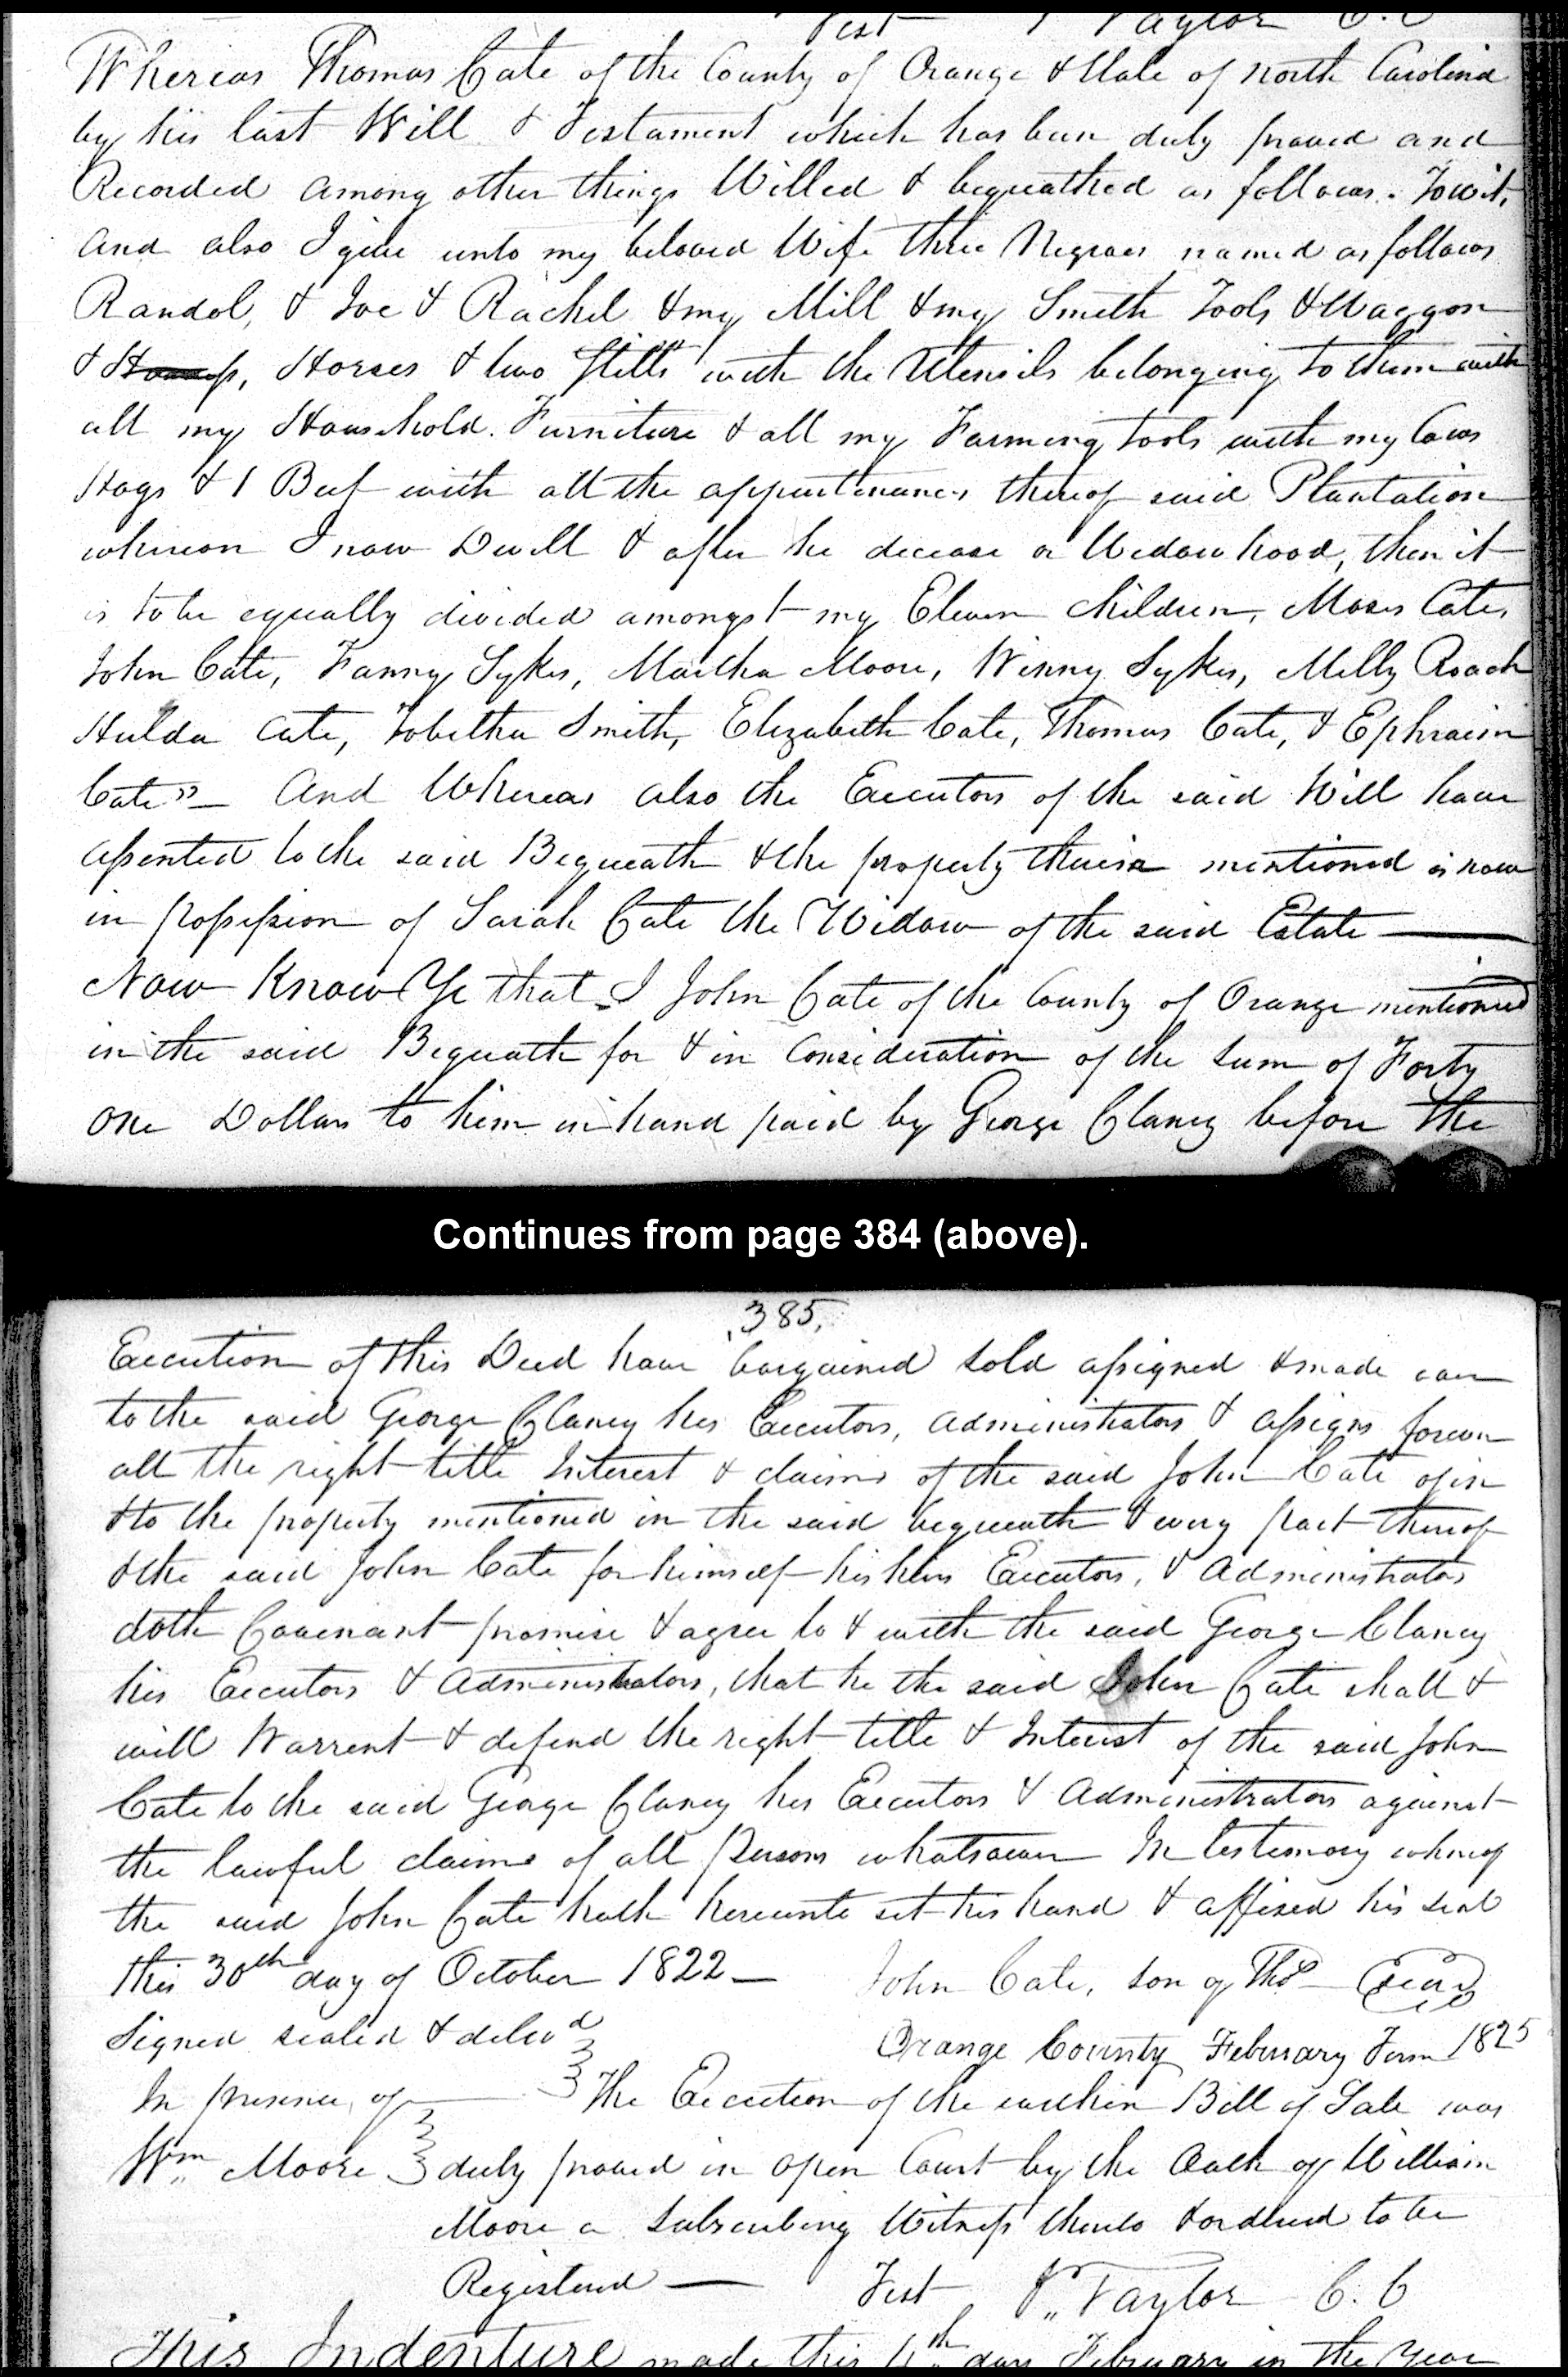 Test Taylor C.C
Whereas Thomas Cate of the County of Orange & State of North Carolina
by his last Will & Testament which has been duly proved and
Recorded among other things Willed & bequeathed as follows. Towit,
And also I give unto my beloved Wife three Negroes named as follows
Randol, & Joe & Rachel & my Mill & my Smith Tools & Waggon
& Horses & two Stills with the Utensils belonging to them with
all my Household. Furniture & all my Farming Tools with my Cows
Hogs & 1 Beef with all the appurtenances thereof said Plantation
whereon I now Dwell & after he decease or Widowhood, then it
is to be equally divided amongst my Eleven Children, Moses Cate,
John Cate, Fanny Sykes, Martha Moore, Winny Sykes, Milly Roach
Hulda Cate, Tobitha Smith, Elizabeth Cate, Thomas Cate, & Ephraim
Cate" – And Whereas also the Executors of the said Will have
assented to the said Bequeath & the property therein mentioned is now
in possession of Sarah Cate the Widow of the said Estate —
Now Know Ye that I John Cate of the County of Orange mentioned
in the said Bequeath for & in Consideration of the sum of Forty
one Dollars to him in hand paid by George Clancy before the
Continues from page 384 (above).
385,
Execution of this Deed have bargained sold assigned & made over
to the said George Clancy his Executors, administrators & assigns forever
all the right title Interest & claims of the said John Cate of in
& to the property mentioned in the said bequeath & every part thereof
& the said John Cate for himself his heirs Executors, & Administrators
doth Covenant promise & agree to & with the said George Clancy
his Executors & Administrators, that he the said John Cate shall &
will Warrent & defend the right title & Interest of the said John
Cate to the said George Clancy his Executors & Administrators against
the lawful claims of all Persons whatsoever In testimony whereof
the said John Cate hath hereunto set his hand & affixed his seal
this 30th day of October 1822 — John Cate, son of Thos Seal
Signed sealed & delivd Orange County February Term 1825
In presence of The Execution of the within Bill of Sale was
Wm Moore duly proved in open Court by the Oath of William
Moore a Subscribing Witness thereto & ordered to be
Registered — Test J. Taylor C. C
This Indenture made this day February in the Year